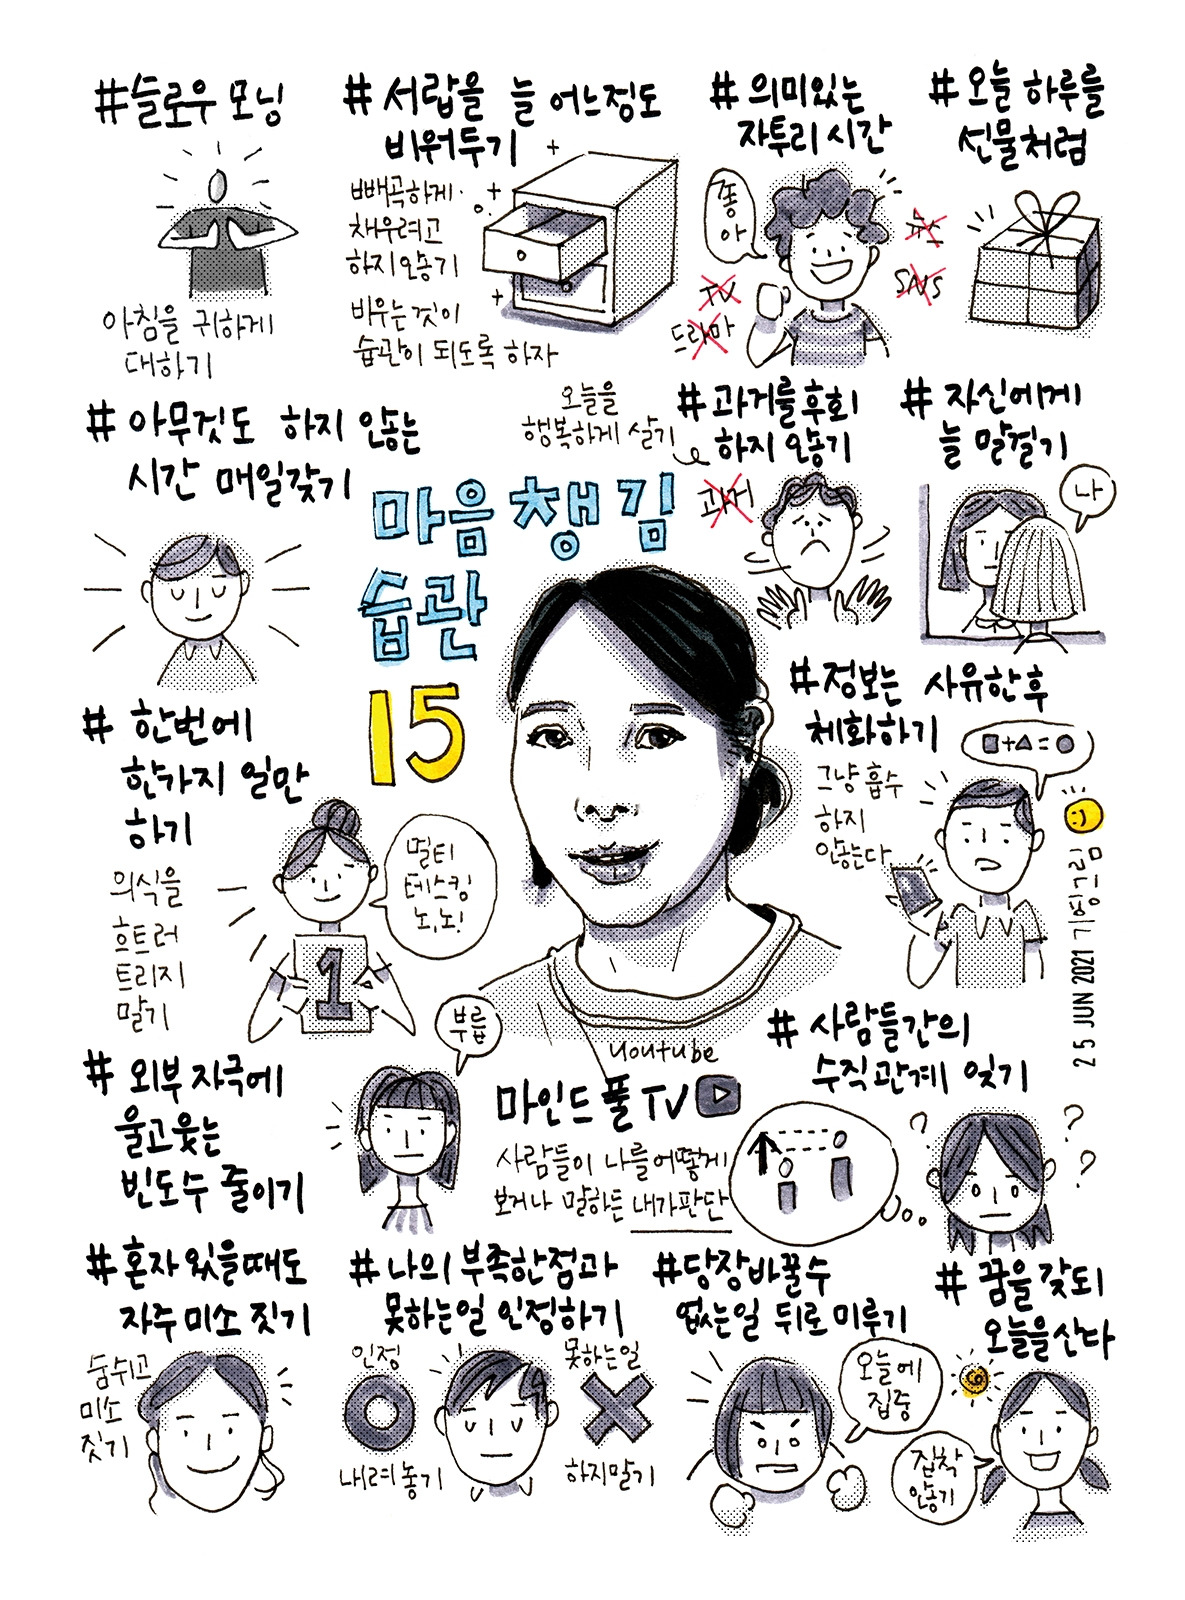 #슬로우 모닝
아침을 귀하게
대하기
# 서랍을 늘 어느정도
비워두기
빼곡하게
채우려고
하지 않기
비우는 것이
습관이 되도록 하자
# 의미있는
자투리 시간
좋아
뉴스
TV
SNS
드라마
# 오늘 하루를
선물처럼
# 아무것도 하지 않는
시간 매일갖기
오늘을
행복하게 살기
# 과거를 후회
하지 않기
과거
# 자신에게
늘 말걸기
나
마음챙김
습관
15
# 한번에
한가지 일만
하기
의식을
흐트러
트리지
말기
멀티
테스킹
노,노!
1
#정보는 사유한후
체화하기
그냥 흡수
하지
않는다
■+▲=●
25 JUN 2021 기형그림
# 외부 자극에
울고 웃는
빈도수 줄이기
부릅
youtube
마인드풀TV
사람들이 나를 어떻게
보거나 말하든 내가판단
# 사람들간의
수직관계 잊기
?
?
?
# 혼자 있을때도
자주 미소 짓기
숨쉬고
미소
짓기
# 나의 부족한점과
못하는일 인정하기
인정
내려놓기
못하는일
하지말기
#당장바꿀수
없는일 뒤로 미루기
오늘에
집중
# 꿈을 갖되
오늘을 산다
집착
않기